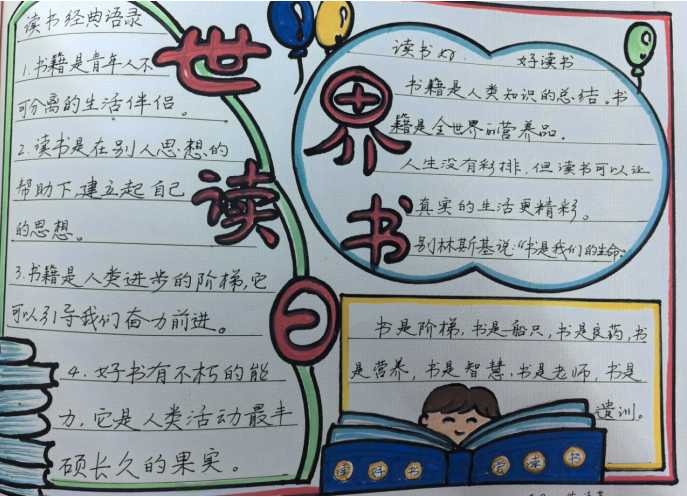 读书经典语录
1.书籍是青年人不
可分离的生活伴侣。
2.读书是在别人思想的
帮助下,建立起自己
的思想。
3.书籍是人类进步的阶梯,它
可以引导我们奋力前进。
4.好书有不朽的能
力,它是人类活动最丰
硕长久的果实。
世
界
读
书
日
读书好. 好读书
书籍是人类知识的总结。书
籍是全世界的营养品。
人生没有彩排,但读书可以让
真实的生活更精彩。
别林斯基说:“书是我们的生命
书是阶梯,书是一船只,书是良药,书
是营养,书是智慧.书是老师,书是
遗训。
读 好 书
读书